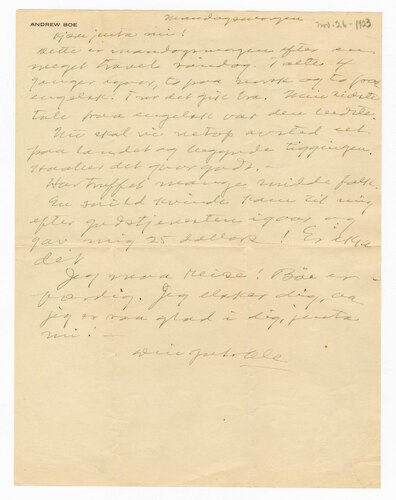 ANDREW BOE
Mandagsmorgen
nov. 26 - 1923
Kjære jenta mi!
Dette er mandagsmorgen efter en
meget travel søndag. Talte 4
ganger igaar, to paa norsk og to paa
engelsk. Tror det gik bra. Min sidste
tale paa engelsk var den bedste.
Nu skal vi netop avsted ut
paa landet og begynde tiggingen.
Haaber det gaar godt. -
Har truffet mange snilde folk.
En snild kvinde kom til mig
efter gudstjenesten igaar og
gav mig 25 dollars! Er ikke
det
Jeg maa reise! Boe er
færdig. Jeg elsker dig, og
jeg er saa glad i dig, jenta
mi! -
Din gut Ole